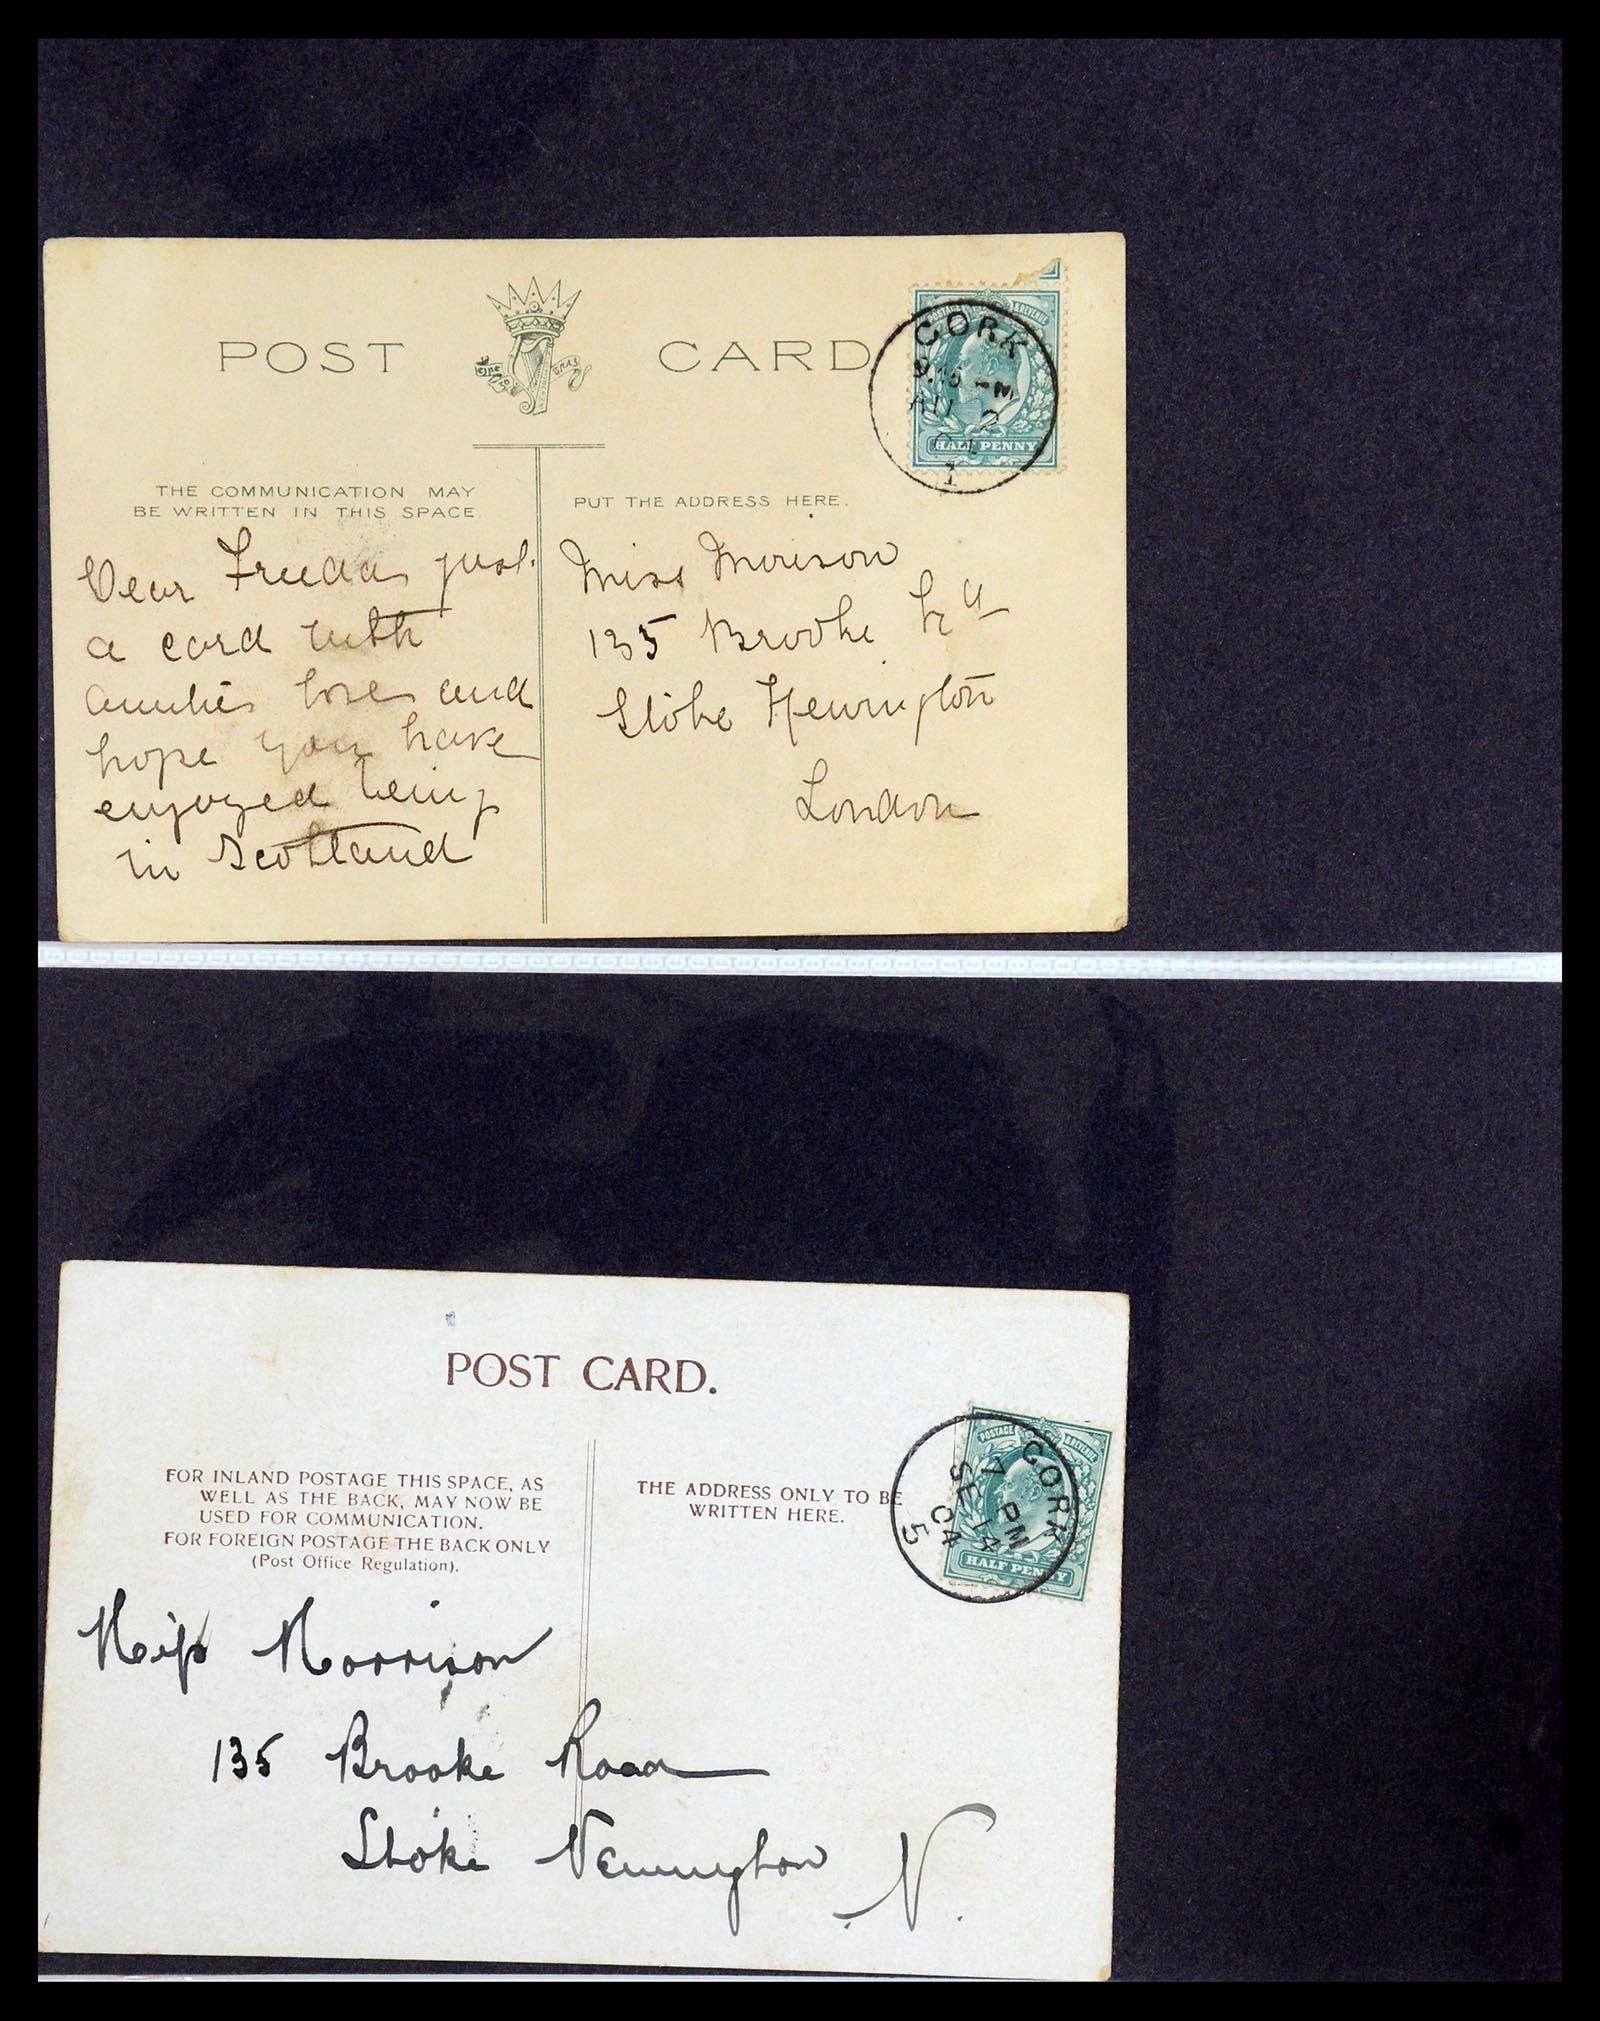 POST CARD
EIRE GO BRAS
POSTAGE & REVENUE
HALF PENNY
CORK
9.15
AU 2
1
THE COMMUNICATION MAY
BE WRITTEN IN THIS SPACE
PUT THE ADDRESS HERE.
Dear Freeda just
a card with
aunties love and
hope you have
enjoyed being
in Scotland
Miss Morison
135 Brooke Rd
Stoke Newington
London
POST CARD.
POSTAGE & REVENUE
HALF PENNY
CORK
7 PM
SE 14
04
5
FOR INLAND POSTAGE THIS SPACE, AS
WELL AS THE BACK, MAY NOW BE
USED FOR COMMUNICATION.
FOR FOREIGN POSTAGE THE BACK ONLY
(Post Office Regulation).
THE ADDRESS ONLY TO BE
WRITTEN HERE.
Miss Morrison
135 Brooke Road
Stoke Newington
N.